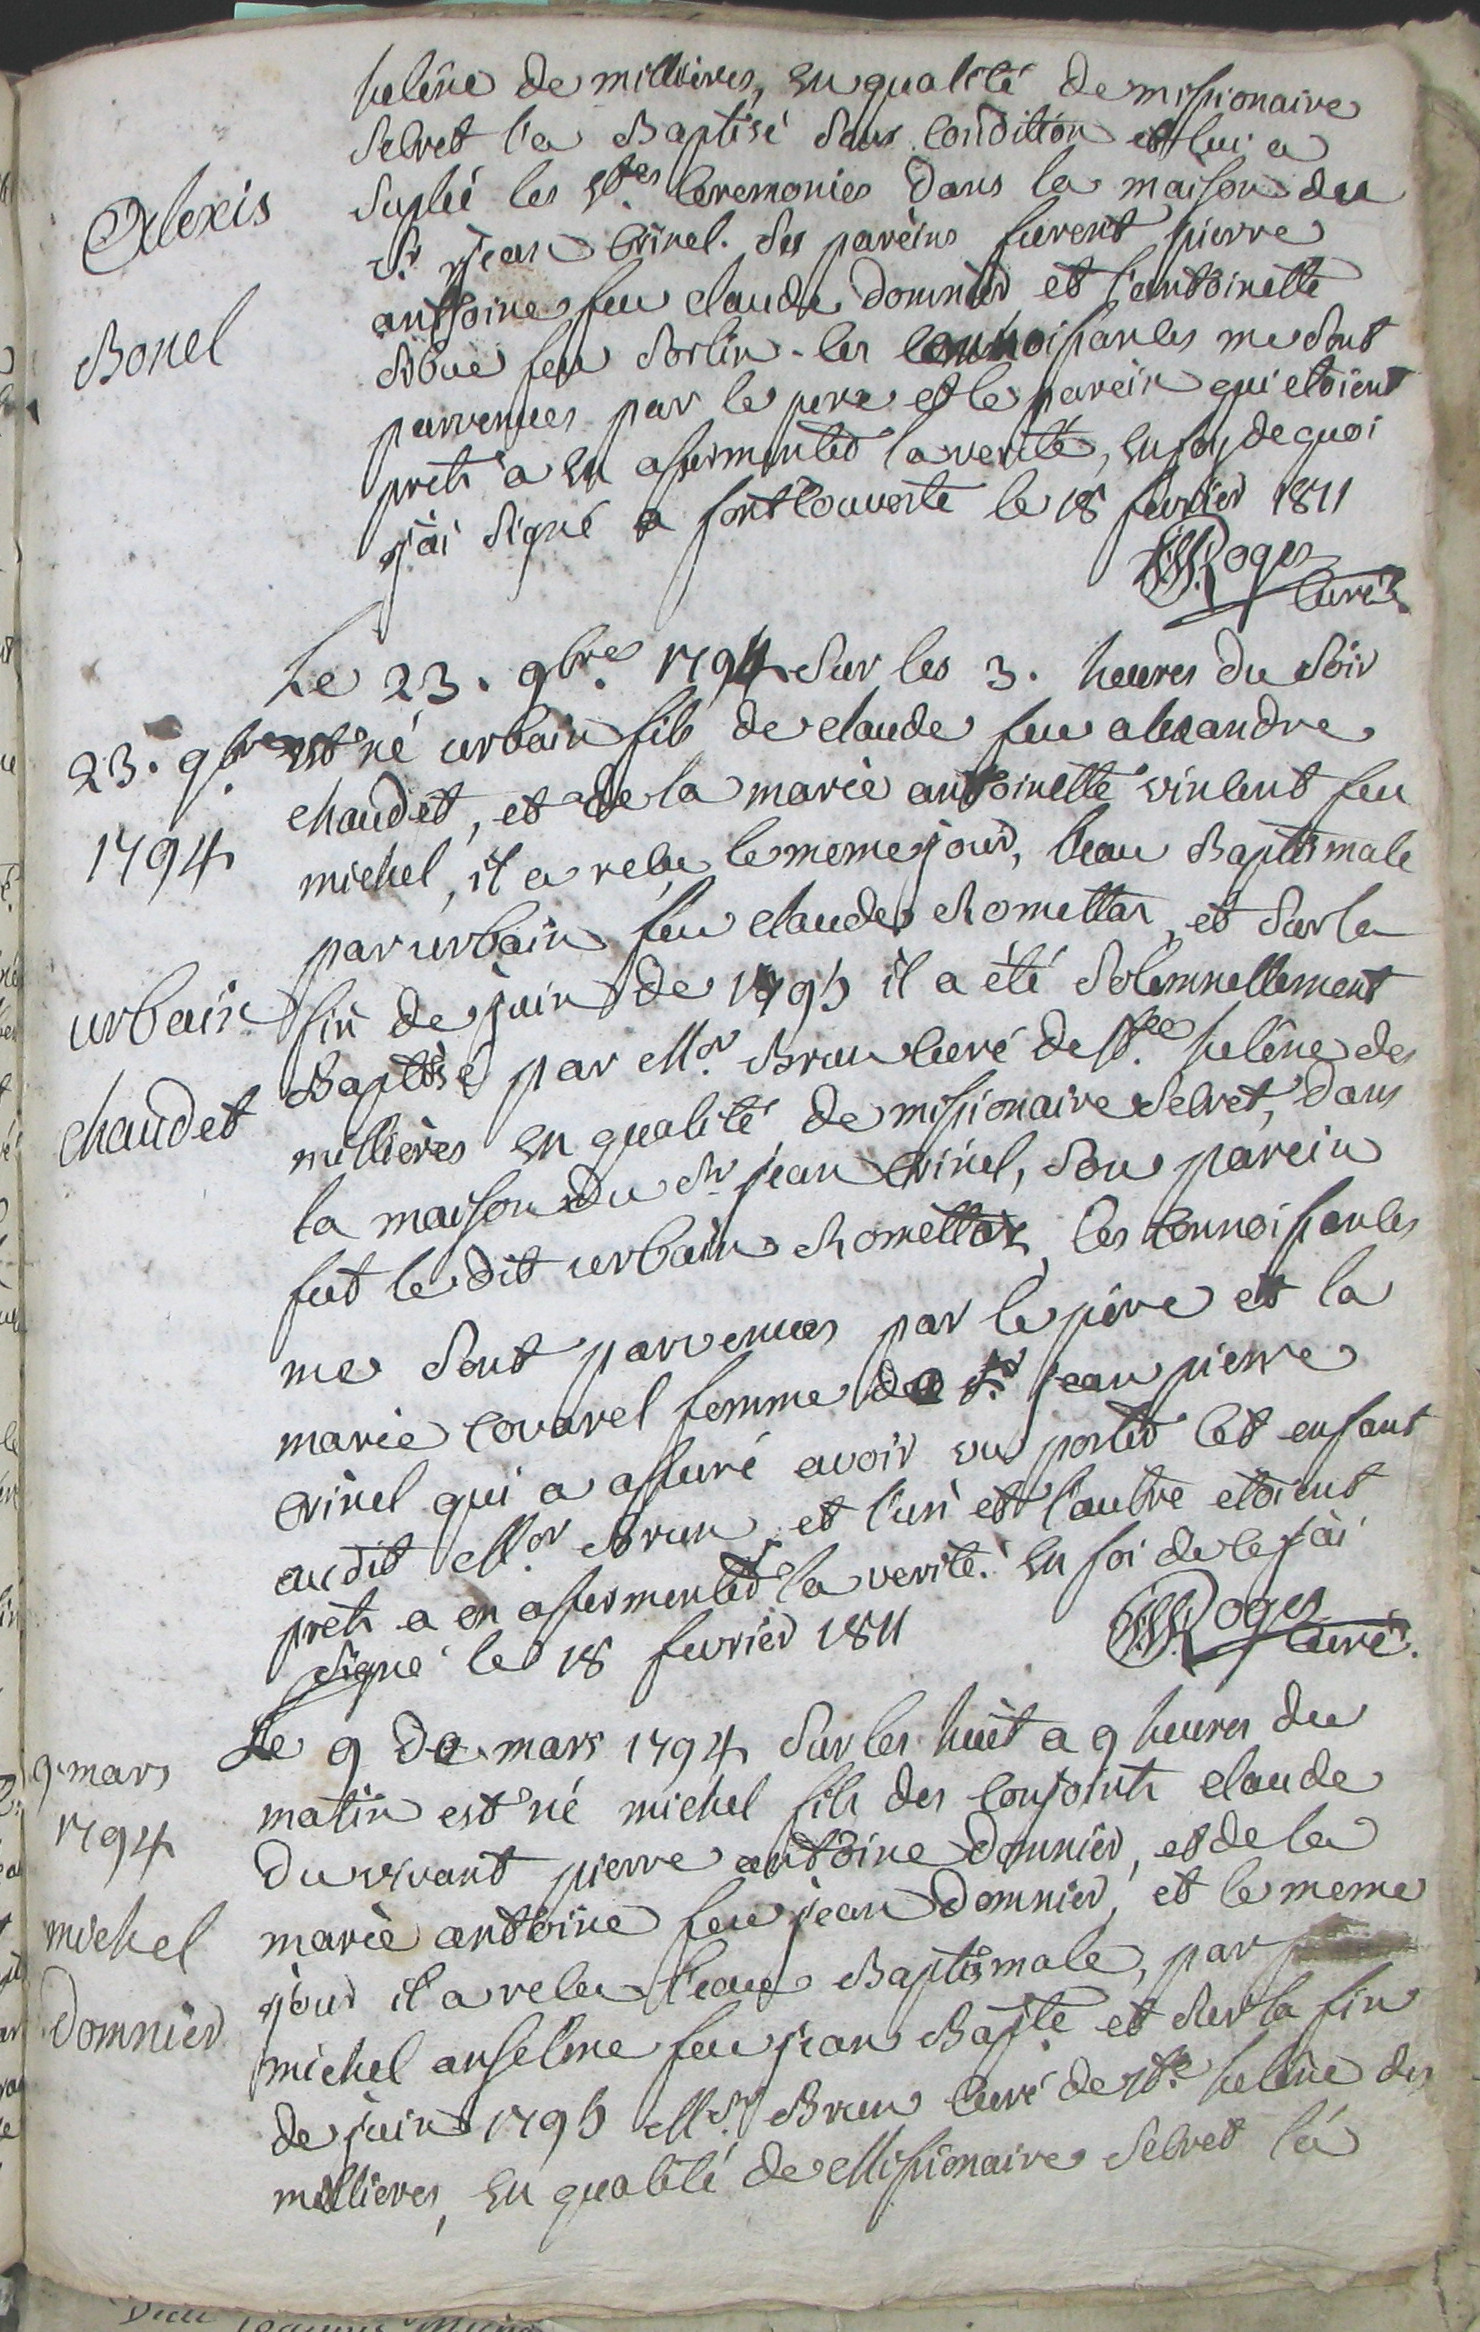 helêne de millieres, en qualité de missionaire
secret l'a Baptisé sous condition et lui a
suplié les Stes ceremonies dans la maison du
Sr jean Crinel. ses pareins furent pierre
antoine feu claude Domnier et l'antoinette
feu Sorlin. les connoissances me sont
parvenues par le pere et le parein qui etoient
prets a en assermenter la verité, en foy de quoi
j'ai signé a fontcouverte le 18 fevrier 1811
Roges
curé
Alexis
Bonel
Le 23. 9bre 1794 sur les 3. heures du soir
23. 9bre est né urbain fils de claude feu alexandre
chaudet, et de la marie antoinette vincent feu
1794
michel, il a recu le meme jour, l'eau Baptismale
par urbain feu claude Chomettar, et sur la
urbain
fin de juin de 1795 il a été solemnellement
Baptisé par Mr Brun curé de Ste helêne des
chaudet
millières en qualité de missionaire secret, dans
la maison du Sr jean Crinel, son parein
fut le dit urbain Chomettar, les connoissances
me sont parvenues par le père et la
marie Covarel femme de Sr jean pierre
Crinel qui a assuré avoir vu porter cet enfant
au dit Mr Brun, et l'un et l'autre etoient
prets a en assermenter la verité. en foi de ce j'ai
signé le 18 fevrier 1811
Roges
curé.
Le 9 de mars 1794 sur les huit a 9 heures du
9. mars
1794
matin est né michel fils des conjoints claude
du vivant pierre antoine Domnier, et de la
michel
marie antoine feu jean Domnier, et le meme
jour il a recu l'eau Baptismale, par
Domnier
michel anselme feu jean Bapte et sur la fin
de juin 1795 Mr Brun curé de Ste helêne des
millieres, en qualité de Missionaire secret l'a